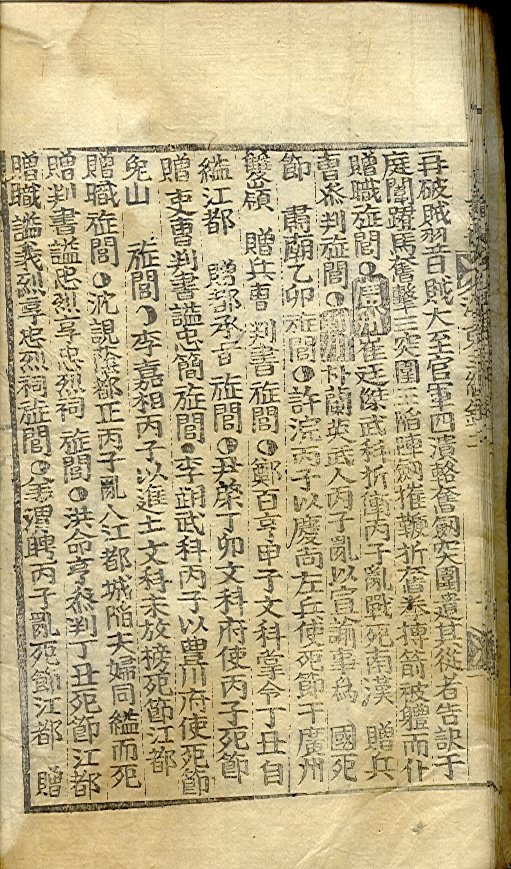 再破賊翌日賊大至官軍四潰輅奮劍突圍遣其從者告訣于
庭闈躍馬奮擊三突圍三陷陣劍摧鞭折奮拳搏箭被軆而仆
贈職㫌閭 崔廷傑武科折衝丙子亂戰死南漢 贈兵
曹叅判㫌閭 朴蘭英武人丙子亂以宣諭事爲 國死
節 肅廟乙卯㫌閭 許浣丙子以慶尙左兵使死節于廣州
雙嶺 贈兵曹判書㫌閭 鄭百亨甲子文科掌令丁丑自
縊江都 贈都承旨㫌閭 尹棨丁卯文科府使丙子死節
贈吏曹判書諡忠簡㫌閭 李 武科丙子以豊川府使死節
兔山 㫌閭 李嘉相丙子以進士文科未放榜死節江都
贈職㫌閭 沈誢蔭都正丙子亂入江都城陷夫婦同縊而死
贈判書諡忠烈享忠烈祠㫌閭 洪命亨叅判丁丑死節江都
贈職諡義烈享忠烈祠㫌閭 聘丙子亂死節江都 贈